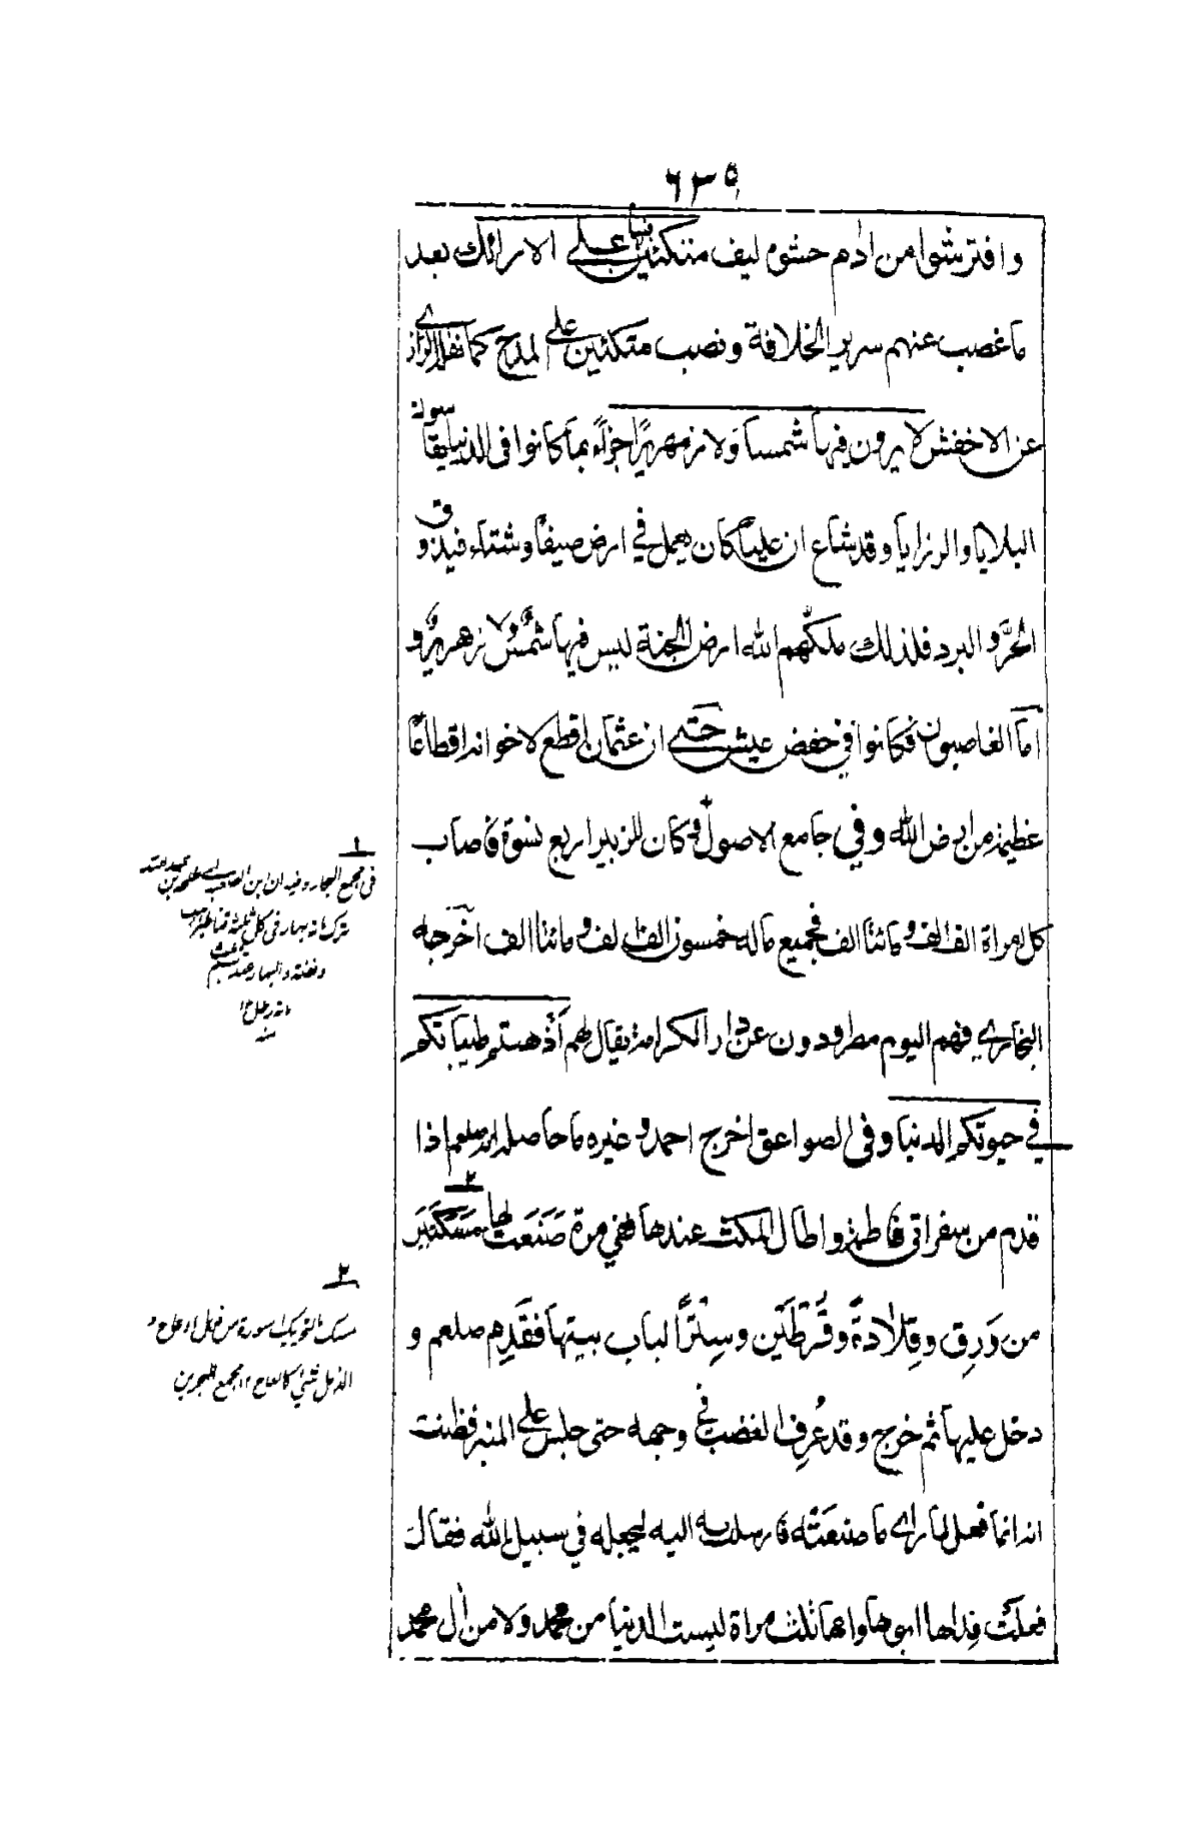 ٦٣٥
وافترشوا من ادم حشوه ليف متكئين فيها على الارائك بعد
ما غصب عنهم سرير الخلافة ونصب متكئين على المدح كما نقله الرازى
عن الاخفش لا يرون فيها شمسا ولا زمهريرا جزاءً بما كانوا فى الدنيا يقاسونه
البلايا والرزايا وقد شاع ان عليًّا كان يعمل في ارض صيفًا وشتاء فيذوق
الحرَّ والبرد فلذلك ملكهم الله ارض الجنة ليس فيها شمسٌ ولا زمهريرٌ و
امّا الغاصبون فكانوا في خفض عيش حتى ان عثمان اقطع لاخوانه اقطاعًا
عظيمة من ارض الله وفي جامع الاصول وكان للزبير اربع نسوة فاصاب
كل امراة الف الف و مائتا الف فجميع ماله خمسون الف الف و مائتا الف اخرجه
البخاري فهم اليوم مطرودون عن دار الكرامة يقال لهم أذهبتم طيباتكم
في حيوتكم الدنيا وفى الصواعق اخرج احمد و غيره ما حاصله انه صلعم اذا
قدم من سفر اتى فاطمة واطال المكث عندها ففي مرة صَنَعَت لها مَسَكَتَين
من وَرِق وقِلادةً وقُرطَين وسِترًا لباب بيتها فقَدِم صلعم و
دخل عليها ثم خرج وقد عُرِف الغضب في وجهه حتى جلس على المنبر فظنت
انه انما فعل لما راى ما صنعَتْه فارسلت به اليه ليجعله في سبيل الله فقال
فعلَت فداها ابوها واعها ثلث مراة ليست الدنيا من محمد ولا من آل محمد
١
فى مجمع البحار وفيه ان ابن
ترك مائة بهار فى كل
٢
مسك بالتحريك اسورة من ذبل او عاج و
الذبل شئ كالعاج ١٢ مجمع البحرين